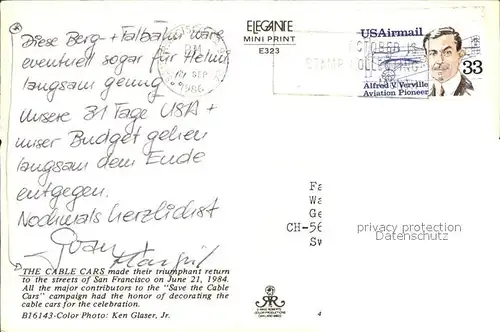 Diese Berg- + Talbahn wäre
eventuell sogar für Helmi
langsam genug
Unsere 31 Tage USA +
unser Budget gehen
langsam dem Ende
entgegen.
Nochmals herzlichst
THE CABLE CARS made their triumphant return
to the streets of San Francisco on June 21, 1984.
All the major contributors to the "Save the Cable
Cars" campaign had the honor of decorating the
cable cars for the celebration.
B16143-Color Photo: Ken Glaser, Jr.
ELEGANTE
MINI PRINT
E323
PM
SEP
1986
OCTOBER IS
STAMP COLLECTING
USAirmail
33
Alfred V. Verville
Aviation Pioneer
Fa
Wa
Ge
CH-56
Sw
privacy protection
Datenschutz
4